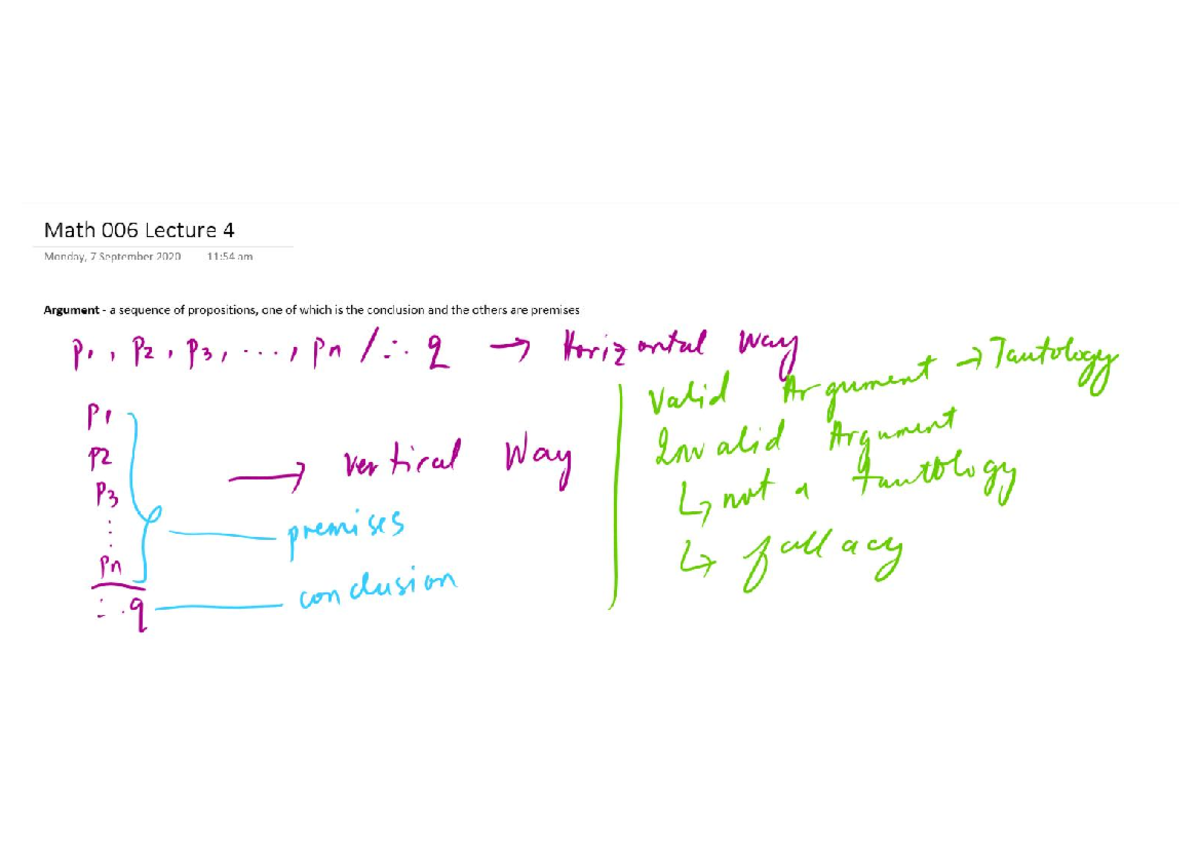 Math 006 Lecture 4
Monday, 7 September 2020 11:54 am
Argument - a sequence of propositions, one of which is the conclusion and the others are premises
P1, P2, P3, ..., Pn /∴ q → Horizontal Way
P1
P2
P3
⋮
Pn
∴ q
→ Vertical Way
premises
conclusion
Valid Argument → Tautology
Invalid Argument
↳ not a tautology
↳ fallacy